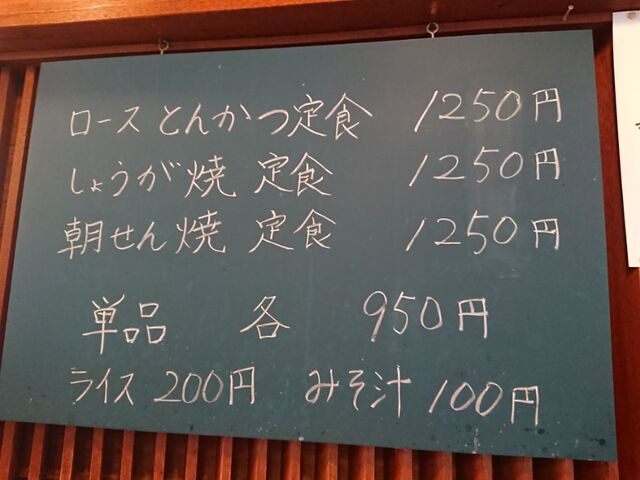 ロース とんかつ定食 1250円
しょうが焼 定食 1250円
朝せん焼 定食 1250円
単品 各 950円
ライス 200円 みそ汁 100円